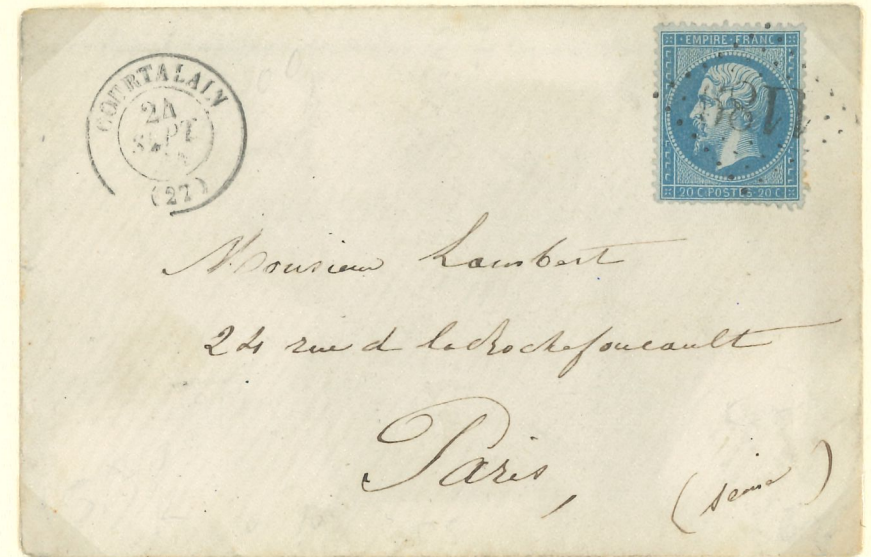 COURTALAIN
24
SEPT
(27)
EMPIRE·FRANC
20 C·POSTES·20 C
Monsieur Lambert
24 rue d laRochefoucault
Paris,
(seine)